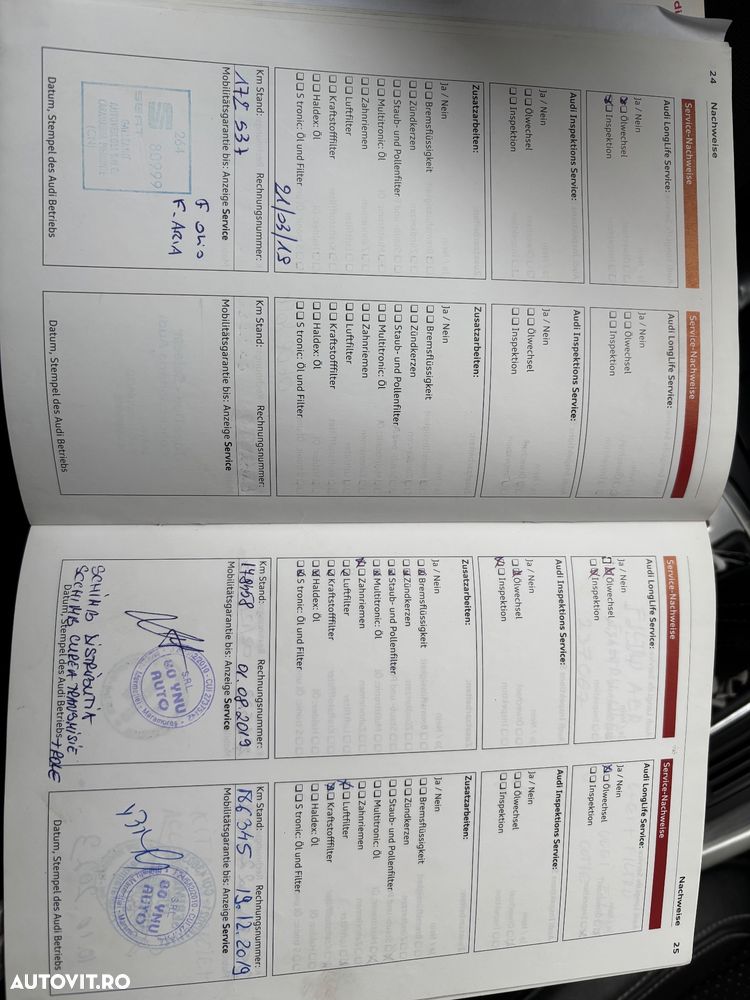 24
Nachweise
Service-Nachweise
Audi LongLife Service:
Ja / Nein
Ölwechsel
Inspektion
Audi Inspektions Service:
Ja / Nein
Ölwechsel
Inspektion
Zusatzarbeiten:
Ja / Nein
Bremsflüssigkeit
Zündkerzen
Staub- und Pollenfilter
Multitronic: Öl
Zahnriemen
Luftfilter
Kraftstofffilter
Haldex: Öl
S tronic: Öl und Filter
21/03/19
Km Stand:
Rechnungsnummer:
172 537
Mobilitätsgarantie bis: Anzeige Service
F OLIO
F-ARIA
SEAT
Datum, Stempel des Audi Betriebs
Service-Nachweise
Audi LongLife Service:
Ja / Nein
Ölwechsel
Inspektion
Audi Inspektions Service:
Ja / Nein
Ölwechsel
Inspektion
Zusatzarbeiten:
Ja / Nein
Bremsflüssigkeit
Zündkerzen
Staub- und Pollenfilter
Multitronic: Öl
Zahnriemen
Luftfilter
Kraftstofffilter
Haldex: Öl
S tronic: Öl und Filter
Km Stand:
Rechnungsnummer:
Mobilitätsgarantie bis: Anzeige Service
Datum, Stempel des Audi Betriebs
Service-Nachweise
Audi LongLife Service:
Ja / Nein
Ölwechsel
Inspektion
Audi Inspektions Service:
Ja / Nein
Ölwechsel
Inspektion
Zusatzarbeiten:
Ja / Nein
Bremsflüssigkeit
Zündkerzen
Staub- und Pollenfilter
Multitronic: Öl
Zahnriemen
Luftfilter
Kraftstofffilter
Haldex: Öl
S tronic: Öl und Filter
Km Stand:
Rechnungsnummer:
01.08.2019
Mobilitätsgarantie bis: Anzeige Service
S.R.L.
BO YNU
AUTO
SCHIMB DISTRIBUTIA
SCHIMB CUREA TRANSMISIE + ROLE
Datum, Stempel des Audi Betriebs
Nachweise
25
Service-Nachweise
Audi LongLife Service:
Ja / Nein
Ölwechsel
Inspektion
Audi Inspektions Service:
Ja / Nein
Ölwechsel
Inspektion
Zusatzarbeiten:
Ja / Nein
Bremsflüssigkeit
Zündkerzen
Staub- und Pollenfilter
Multitronic: Öl
Zahnriemen
Luftfilter
Kraftstofffilter
Haldex: Öl
S tronic: Öl und Filter
Km Stand:
Rechnungsnummer:
186345 19.12.2019
Mobilitätsgarantie bis: Anzeige Service
S.R.L.
BO YNU
AUTO
Datum, Stempel des Audi Betriebs
AUTOVIT.RO